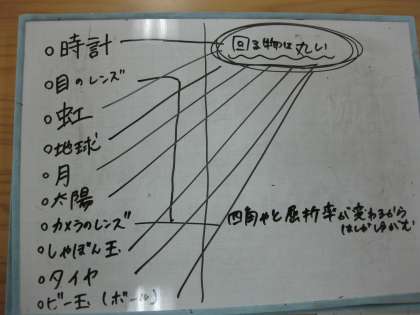 回る物は丸い
○時計
○目のレンズ
○虹
○地球
○月
○太陽
○カメラのレンズ
四角やと屈折率が変わるから
はしがゆがむ
○しゃぼん玉
○タイヤ
○ビー玉(ボール)